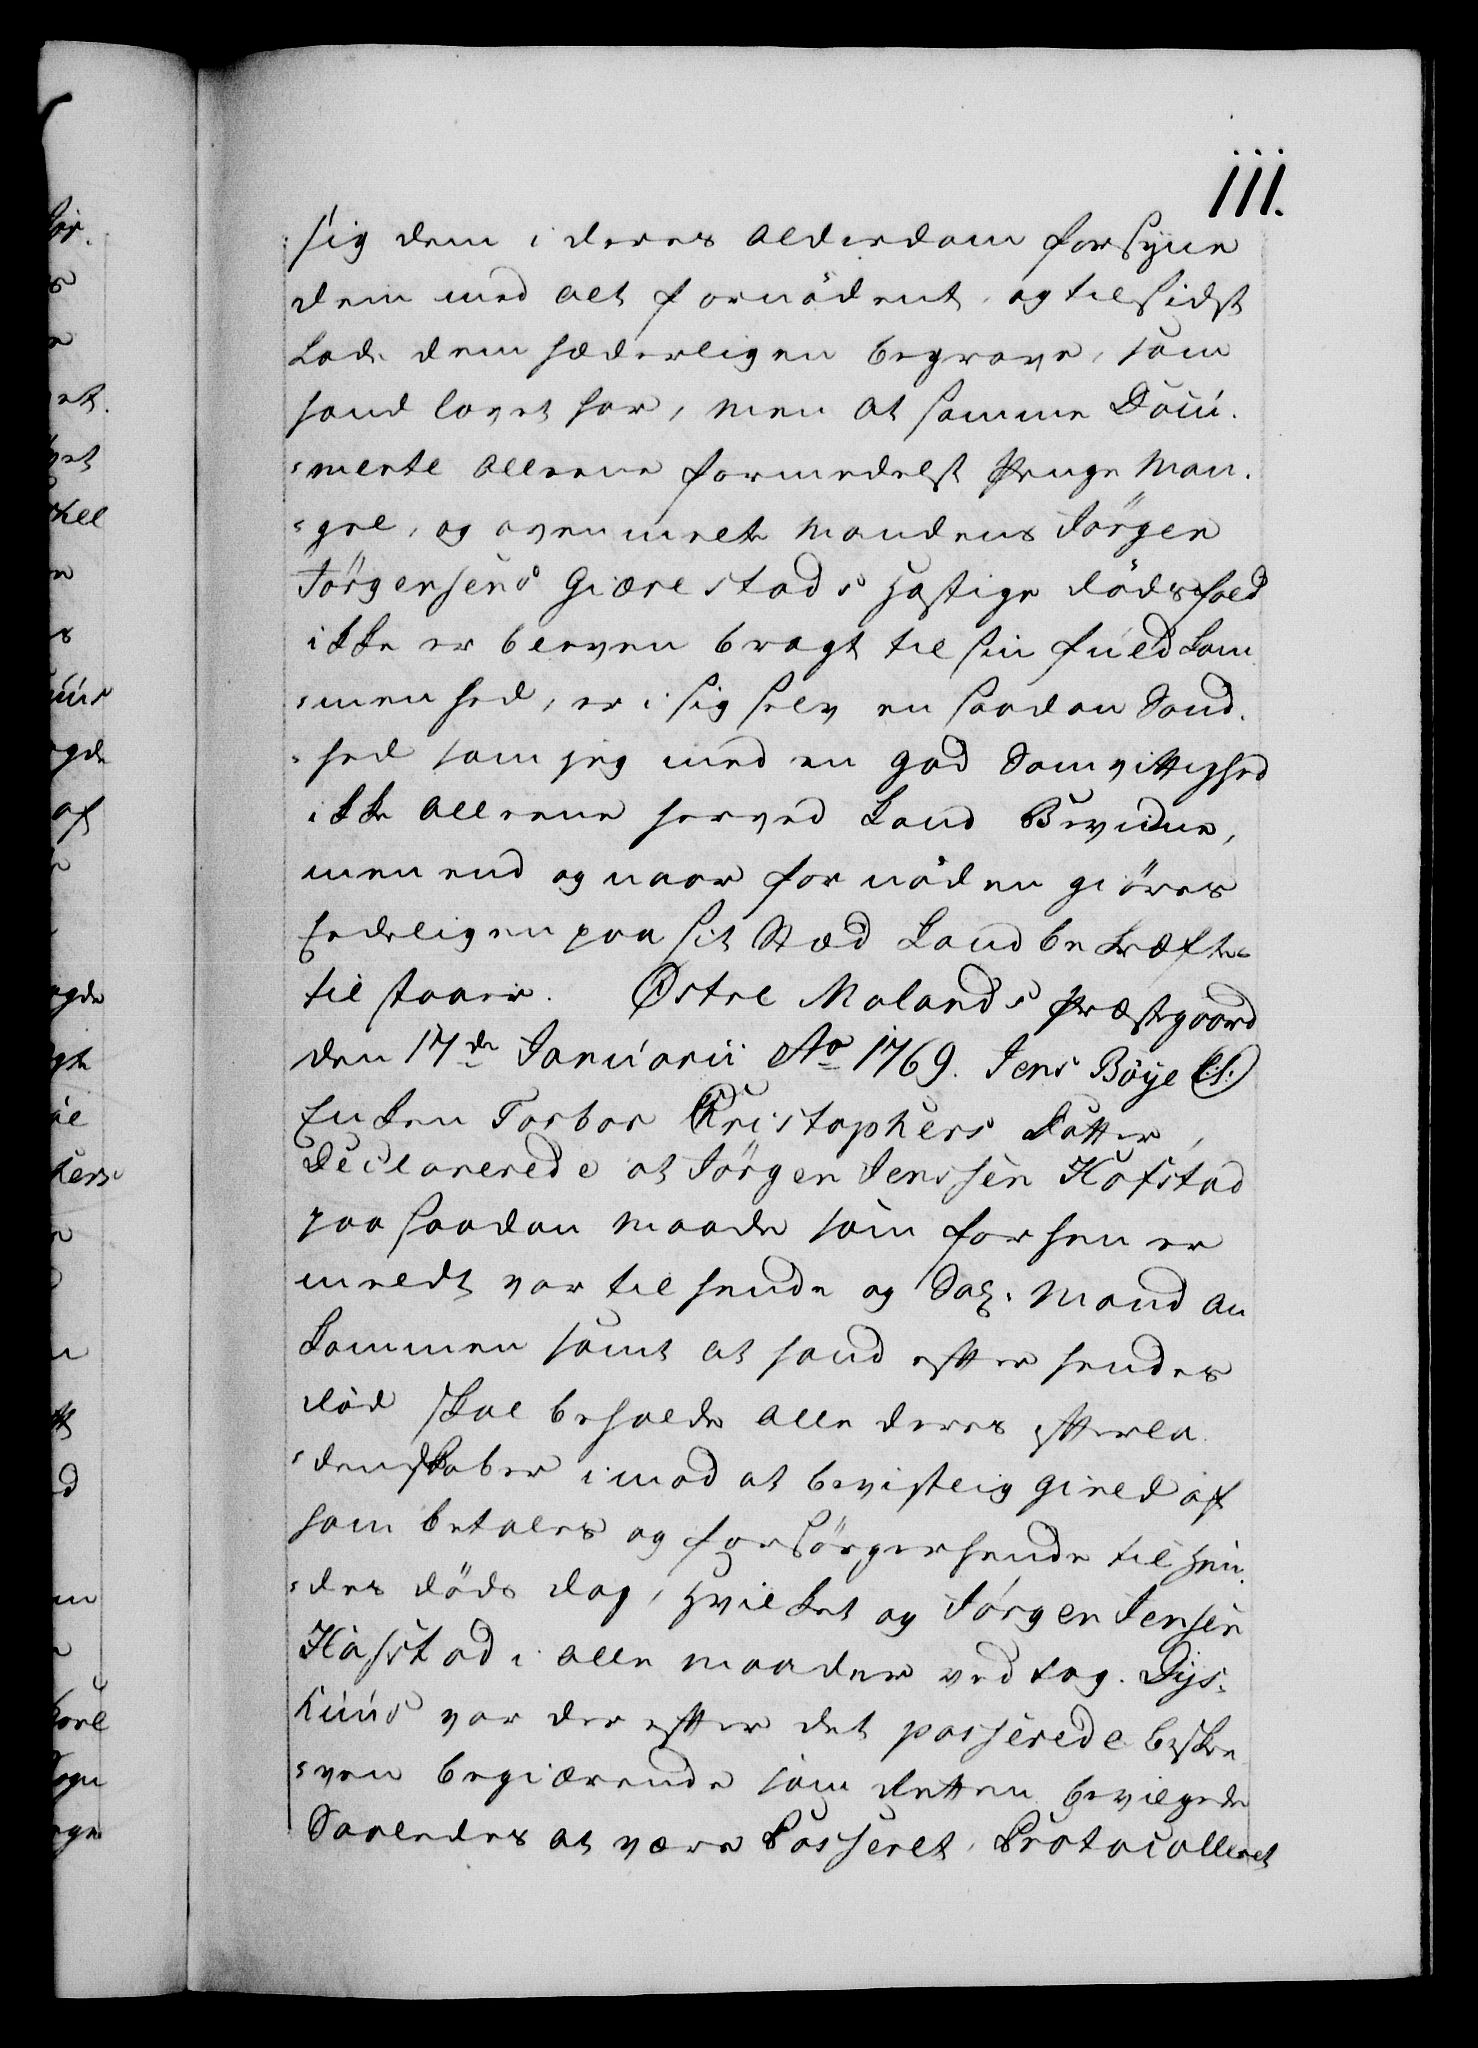 111.
sig dem i deres Alderdom forsyne
dem med alt fornødent, og til sidst
Lade dem hæderligen begrave, som
hand lovet har, men at samme Docu-
=mente Alleene formedelst Penge Man-
=gel, og ovenmelte Mandens Jörgen
Jörgensens Giærestads hastige dødsfald
ikke er bleven bragt til sin fuldkom
=menhed, er i sig selv en saadan Sand-
=hed som jeg med en god Samvittighed
ikke Alleene herved kand Bevidne,
men end og naar fornøden giöres
Eedeligen paa sit Stæd kand bekræfte
tilstaaer. Østre Molands Præstegaard
den 17de Januarii Ao 1769. Jens Böye (L:S:)
Enken Torbor Christophers Datter,
Declarerede at Jörgen Jenssen Hofstad
paa saadan maade som forhen er
meldt var til hende og Sal: Mand an
kommen samt at hand efter hendes
död skal beholde Alle deres efterla
=denskaber imod at bevislig Gield af
ham betales og forsörger hende til hen-
=des döds dag, hvilket og Jörgen Jensen
Hofstad i alle maader vedtog. Dijs-
kuus var der efter det passerede beskre
=ven begiærende som Retten bevilgede
Saaledes at være Passeret, Protocolleret